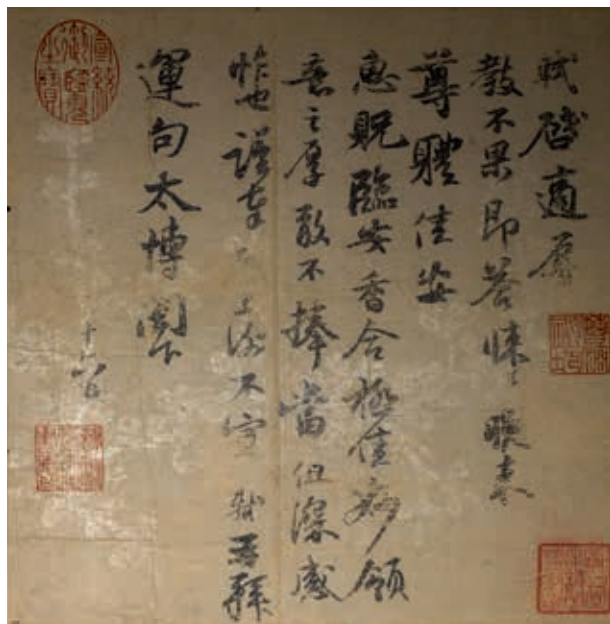 軾啓適辱
教不果即答悚〻晚來
尊體佳安
惠貺臨安香合極佳妙領
意之厚敢不捧當但深感
怍也謹奉啓上謝不宣 軾再拜
運句太博閣下
十六日
宣統御覽之寶